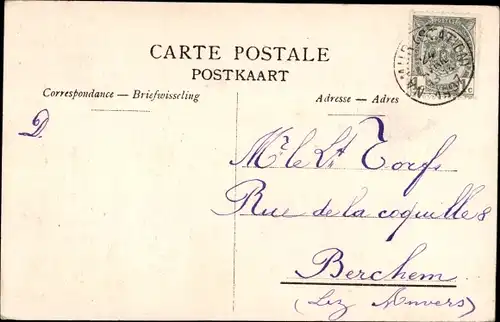 CARTE POSTALE
POSTKAART
Correspondance — Briefwisseling
Adresse — Adres
D.
Mr. le Lt Torfs
Rue de la coquille 8
Berchem
(Lez Anvers)